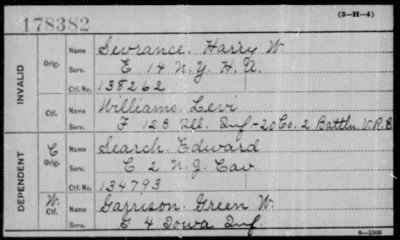 178382
(3—H—4)
INVALID
Orig. Name Sevrance, Harry W.
Serv. E 14 N.Y. H.A.
Ctf. No. 138262
Ctf. Name Williams Levi
Serv. F 123 Ill. Inf - 20 Co. 2 Battln V.R.C
DEPENDENT
C Orig. Name Search, Edward
Serv. C 2 N.J. Cav
Ctf. No. 134793
W. Ctf. Name Garrison, Green W.
Serv. G 4 Iowa Inf.